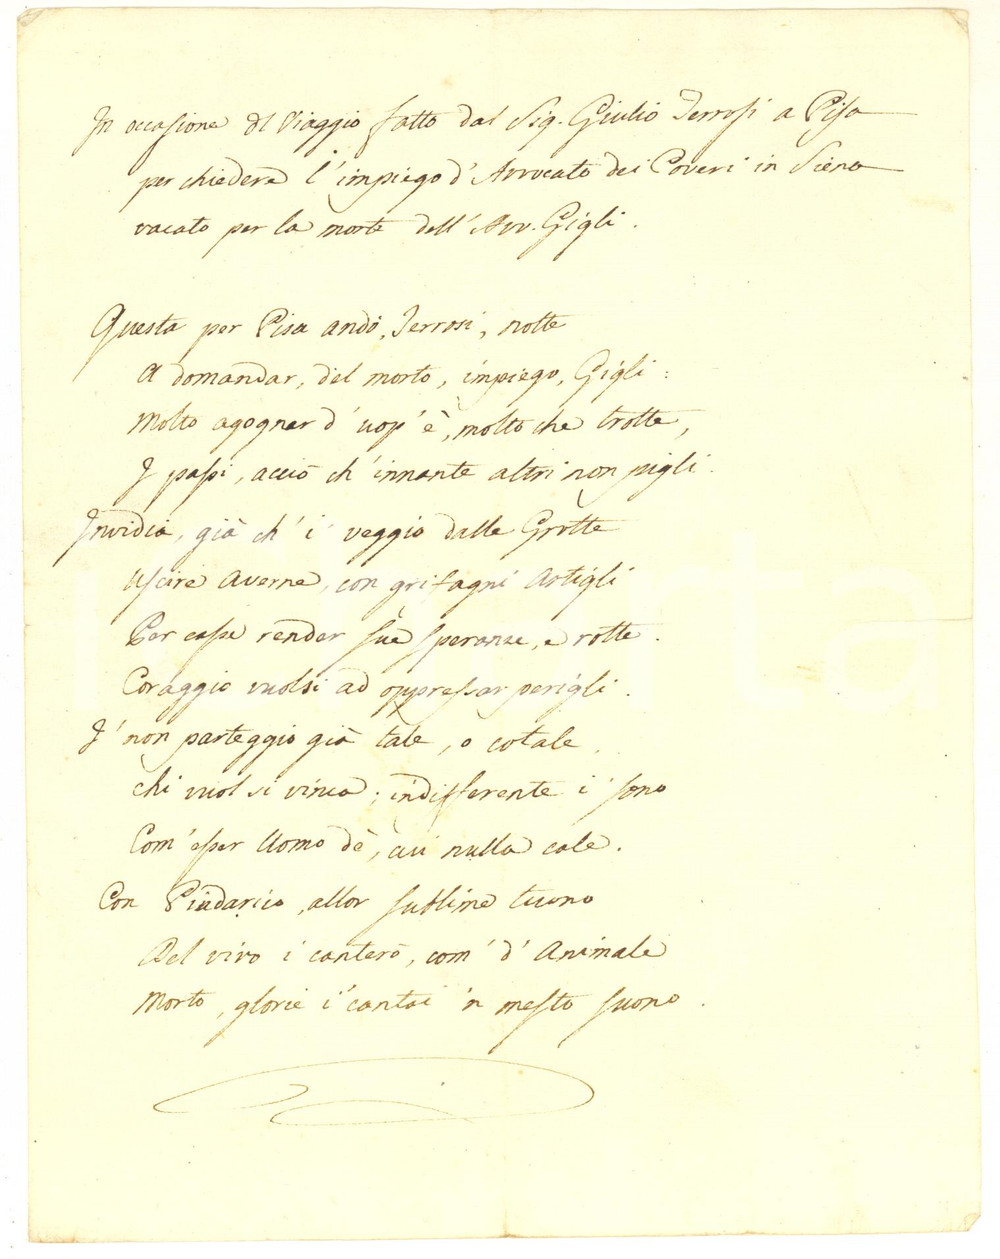 In occasione dl Viaggio fatto dal Sig. Giulio Terrosi a Pisa
per chiedere l'impiego d'Avvocato dei Poveri in Siena
vacato per la morte dell'Avv. Gigli.
Questa per Pisa andò, Terrosi, notte
A domandar, del morto, impiego, Gigli:
Molto agognar d'uop'è, molto che trotte,
I passi, acciò ch'innante altri non pigli.
Invidia, già ch'i' veggio dalle Grotte
Uscire Averne, con grifagni Artigli
Per casse render sue speranze, e rotte.
Coraggio vuolsi ad oppressar perigli.
I' non parteggio già tale, o cotale,
chi vuol si vinca; indifferente i' sono
Com'esser Uomo dè, cui nulla cale.
Con Pindarico, allor sublime tuono
Del vivo i' canterò, com' d'Animale
Morto, glorie i' cantai 'n mesto suono.